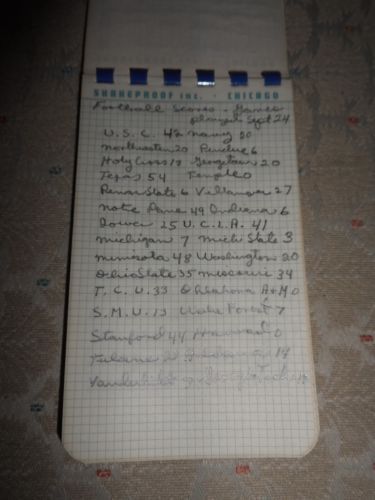 SHAKEPROOF INC. · CHICAGO
Football Scores - Games
played Sept 24
U.S.C. 42 Navy 20
Northwestern 20 Purdue 6
Holy Cross 19 Georgetown 20
Texas 54 Temple 0
Penn State 6 Villanova 27
Notre Dame 49 Indiana 6
Iowa 25 U.C.L.A. 41
Michigan 7 Mich State 3
Minnesota 48 Washington 20
Ohio State 35 Missouri 34
T.C.U. 33 Oklahoma A+M 0
S.M.U. 13 Wake Forest 7
Stanford 44 Harvard 0
Tulane
Vanderbilt Georgia Tech